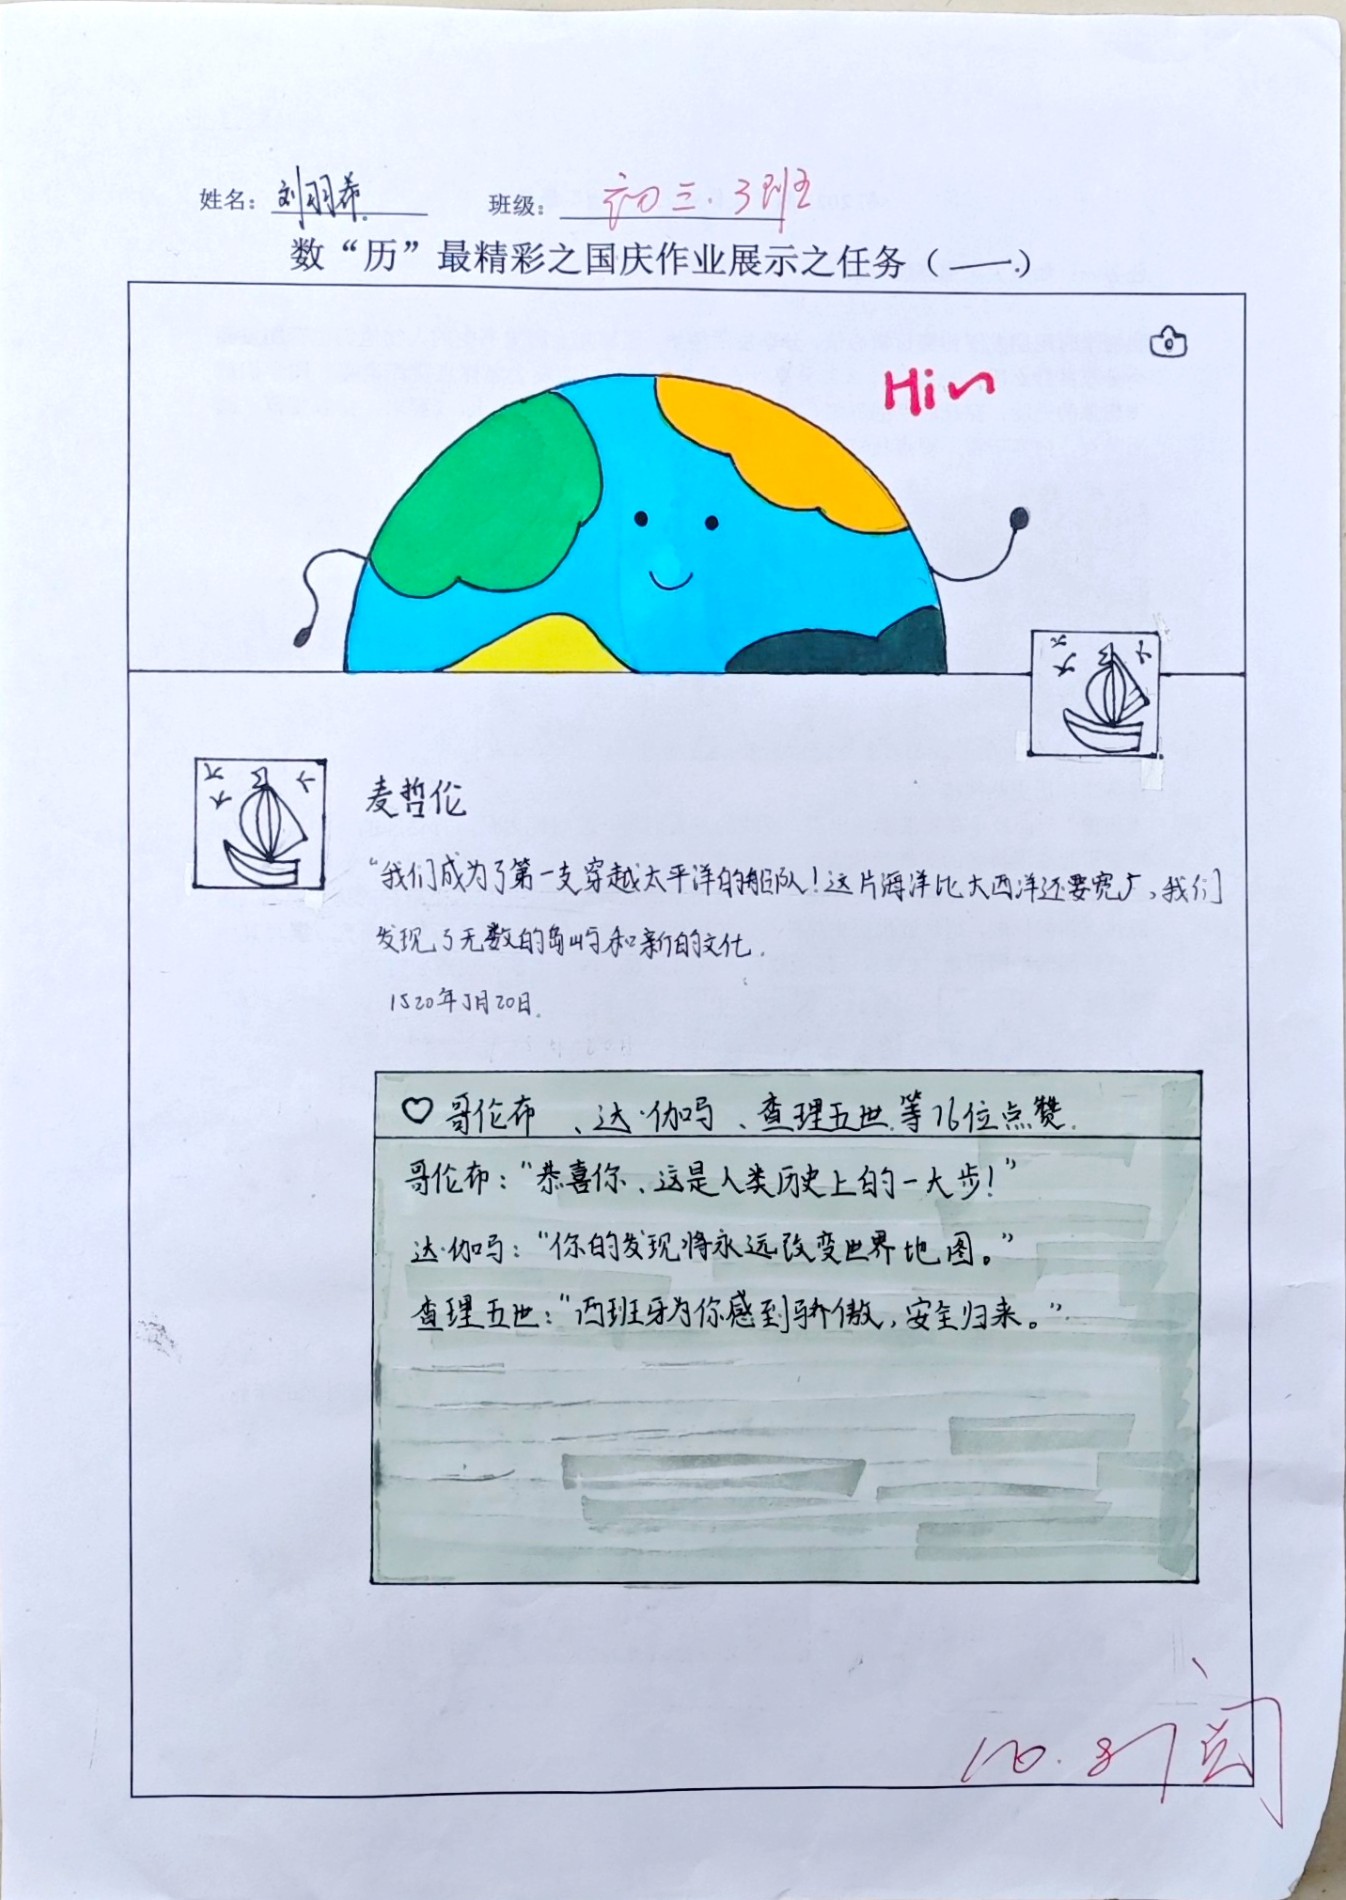 姓名：刘羽希 班级：初三.3班
数“历”最精彩之国庆作业展示之任务（一.）
Hi~
麦哲伦
“我们成为了第一支穿越太平洋的船队！这片海洋比大西洋还要宽广，我们
发现了无数的岛屿和新的文化.
1520年3月20日.
哥伦布、达·伽马、查理五世.等76位点赞.
哥伦布：“恭喜你、这是人类历史上的一大步！”
达·伽马：“你的发现将永远改变世界地图。”
查理五世：“西班牙为你感到骄傲，安全归来。”
10.8阅